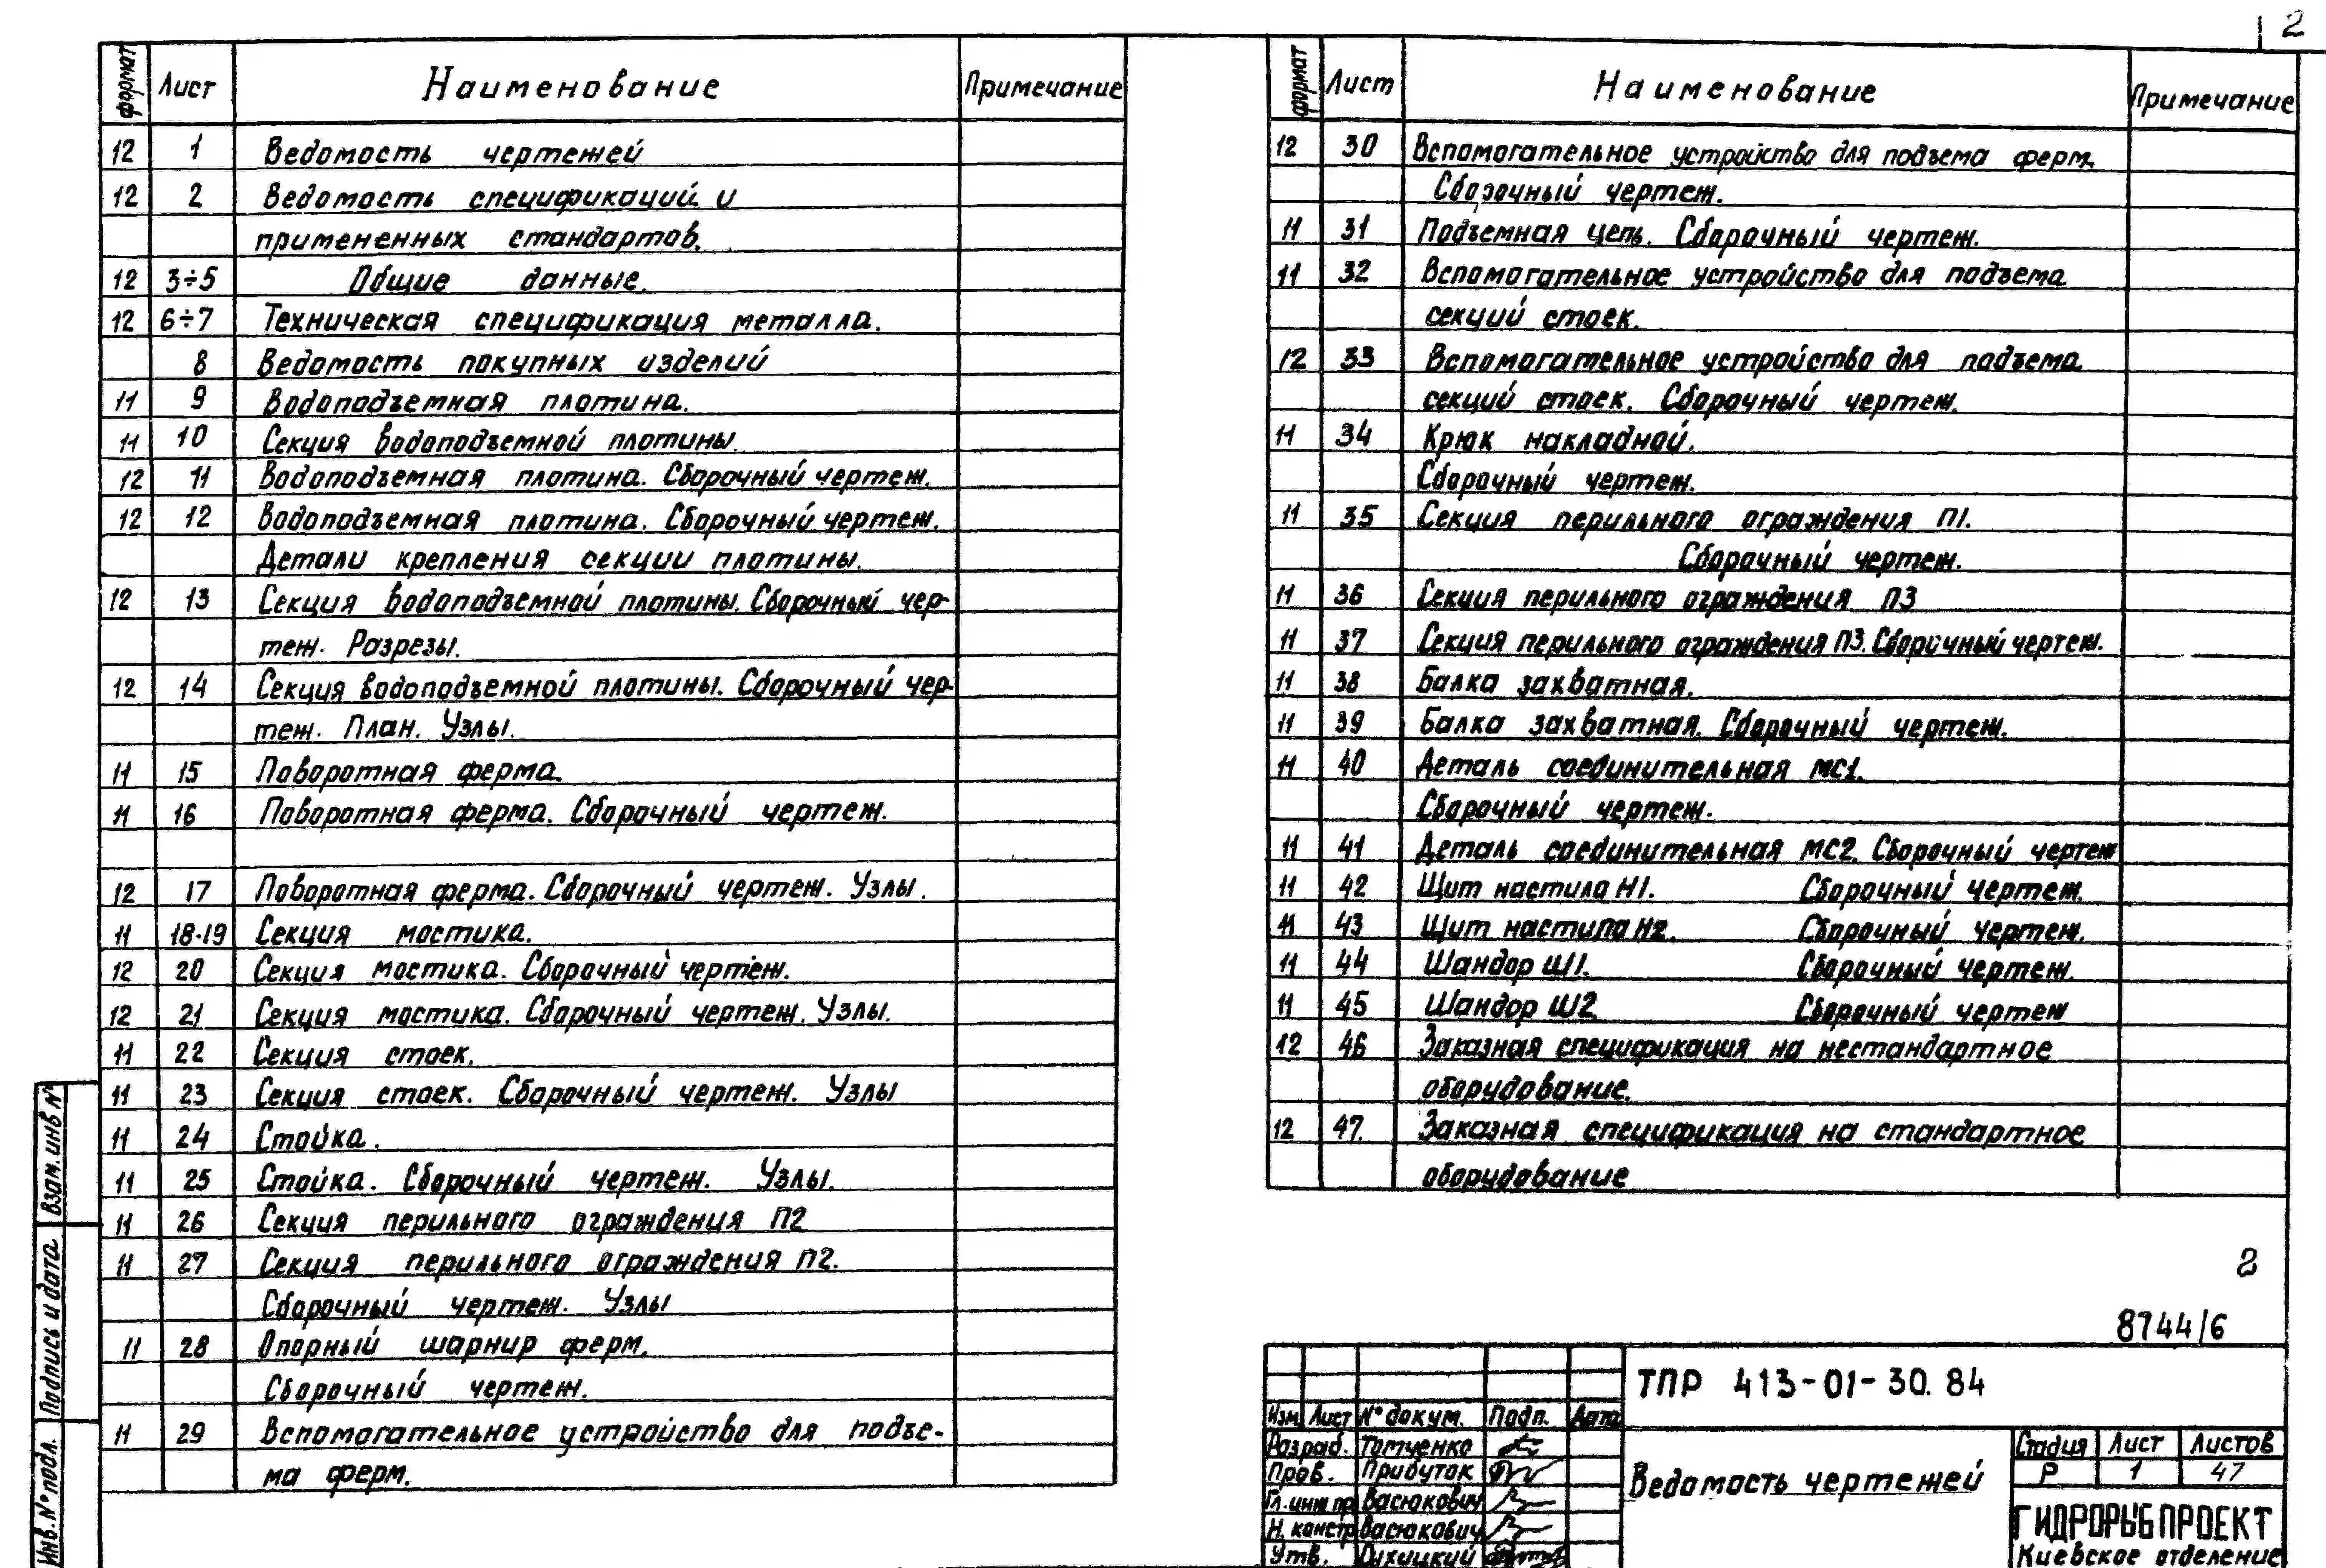 2
формат Лист Наименование Примечание
12 1 Ведомость чертежей
12 2 Ведомость спецификаций и
примененных стандартов.
12 3÷5 Общие данные.
12 6÷7 Техническая спецификация металла.
8 Ведомость покупных изделий
11 9 Водоподъемная плотина.
11 10 Секция водоподъемной плотины.
12 11 Водоподъемная плотина. Сборочный чертеж.
12 12 Водоподъемная плотина. Сборочный чертеж.
Детали крепления секции плотины.
12 13 Секция водоподъемной плотины. Сборочный чер-
теж. Разрезы.
12 14 Секция водоподъемной плотины. Сборочный чер-
теж. План. Узлы.
11 15 Поворотная ферма.
11 16 Поворотная ферма. Сборочный чертеж.
12 17 Поворотная ферма. Сборочный чертеж. Узлы.
11 18-19 Секция мостика.
12 20 Секция мостика. Сборочный чертеж.
12 21 Секция мостика. Сборочный чертеж. Узлы.
11 22 Секция стоек.
11 23 Секция стоек. Сборочный чертеж. Узлы
11 24 Стойка.
11 25 Стойка. Сборочный чертеж. Узлы.
11 26 Секция перильного ограждения П2
11 27 Секция перильного ограждения П2.
Сборочный чертеж. Узлы
11 28 Опорный шарнир ферм.
Сборочный чертеж.
11 29 Вспомогательное устройство для подъе-
ма ферм.
формат Лист Наименование Примечание
12 30 Вспомогательное устройство для подъема ферм.
Сборочный чертеж.
11 31 Подъемная цепь. Сборочный чертеж.
11 32 Вспомогательное устройство для подъема
секций стоек.
12 33 Вспомогательное устройство для подъема
секций стоек. Сборочный чертеж.
11 34 Крюк накладной.
Сборочный чертеж.
11 35 Секция перильного ограждения П1.
Сборочный чертеж.
11 36 Секция перильного ограждения П3
11 37 Секция перильного ограждения П3. Сборочный чертеж.
11 38 Балка захватная.
11 39 Балка захватная. Сборочный чертеж.
11 40 Деталь соединительная МС1.
Сборочный чертеж.
11 41 Деталь соединительная МС2. Сборочный чертеж
11 42 Щит настила Н1. Сборочный чертеж.
11 43 Щит настила Н2. Сборочный чертеж.
11 44 Шандор Ш1. Сборочный чертеж.
11 45 Шандор Ш2 Сборочный чертеж
12 46 Заказная спецификация на нестандартное
оборудование.
12 47. Заказная спецификация на стандартное
оборудование
2
8744/6
ТПР 413-01-30.84
Изм. Лист № докум. Подп. Дата
Разраб. Томченко
Пров. Прибуток
Гл. инж. пр. Васюкович
Н. констр. Васюкович
Утв.
Ведомость чертежей
Стадия Лист Листов
Р 1 47
ГИДРОРЫБПРОЕКТ
Киевское отделение
Взам. инв №
Подпись и дата
Инв. № подл.